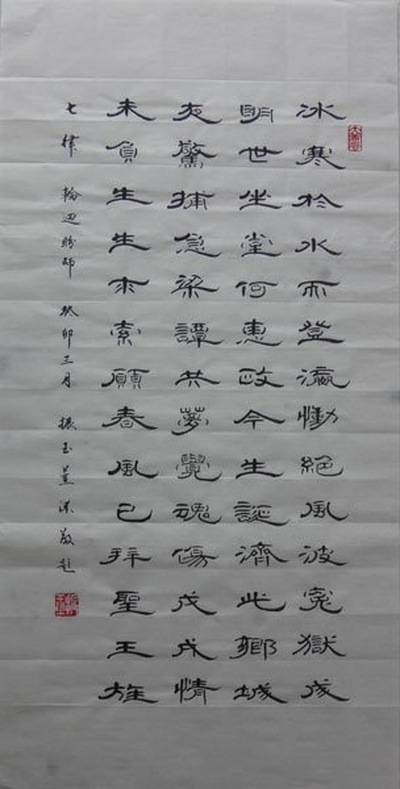 冰寒於水而登瀛慟絕風波冤獄成
明世坐堂何惠政今生誕濟此鄉城
夜驚捕急梁譚共夢覺魂傷戊戌情
未負生生求索願春風已拜聖王旌
七律 師 癸卯三月 振玉 敬題